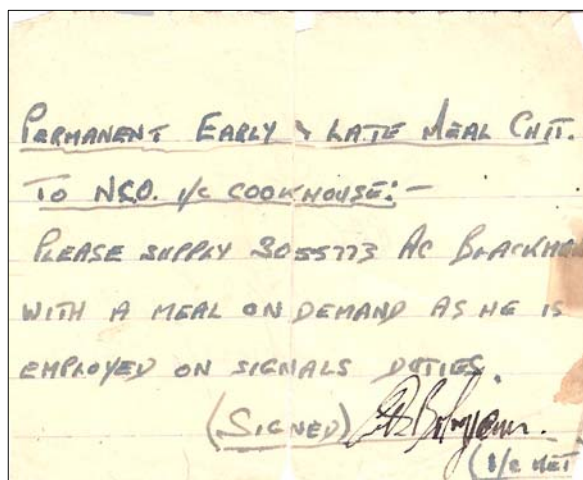 PERMANENT EARLY & LATE MEAL CHIT.
TO N.C.O. I/C COOKHOUSE:-
PLEASE SUPPLY 3055773 AC BLACKMAN
WITH A MEAL ON DEMAND AS HE IS
EMPLOYED ON SIGNALS DUTIES.
(SIGNED)
(I/C NET